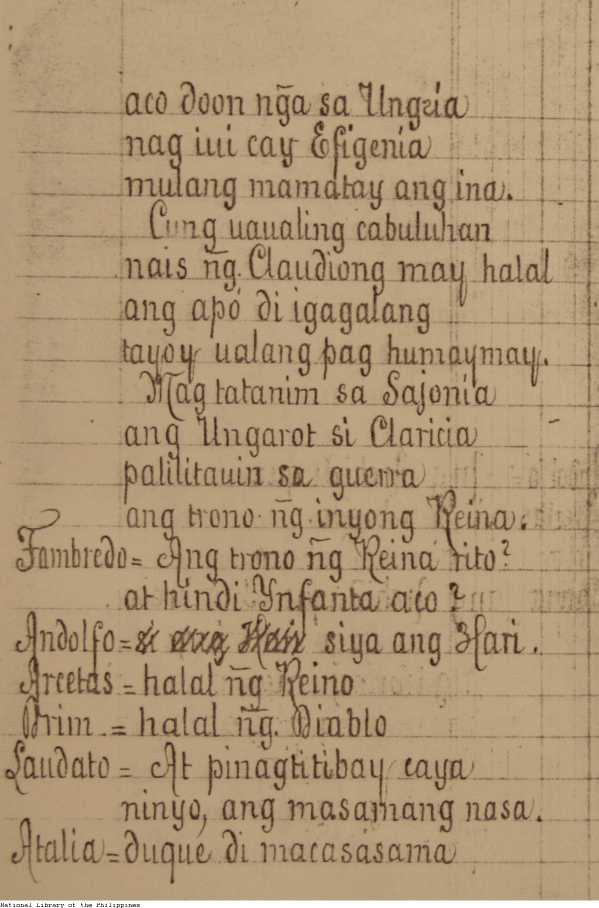 aco doon ng̃a sa Ungria
nag iui cay Efigenia
mulang mamatay ang ina.
Cung uaualing cabuluhan
nais ng̃. Claudiong may halal
ang apó di igagalang
tayoy ualang pag humaymay.
Mag tatanim sa Sajonia
ang Ungarot si Claricia
palilitauin sa guerra
ang trono ng̃ inyong Reina.
Fambredo= Ang trono ng̃ Reina rito?
at hindi Ynfanta aco?
Andolfo= siya ang Hari.
Arcetas = halal ng̃ Reino
Brim. = halal ng̃. Diablo
Laudato = At pinagtitibay caya
ninyo, ang masamang nasa.
Atalia = duque di macasasama
National Library of the Philippines